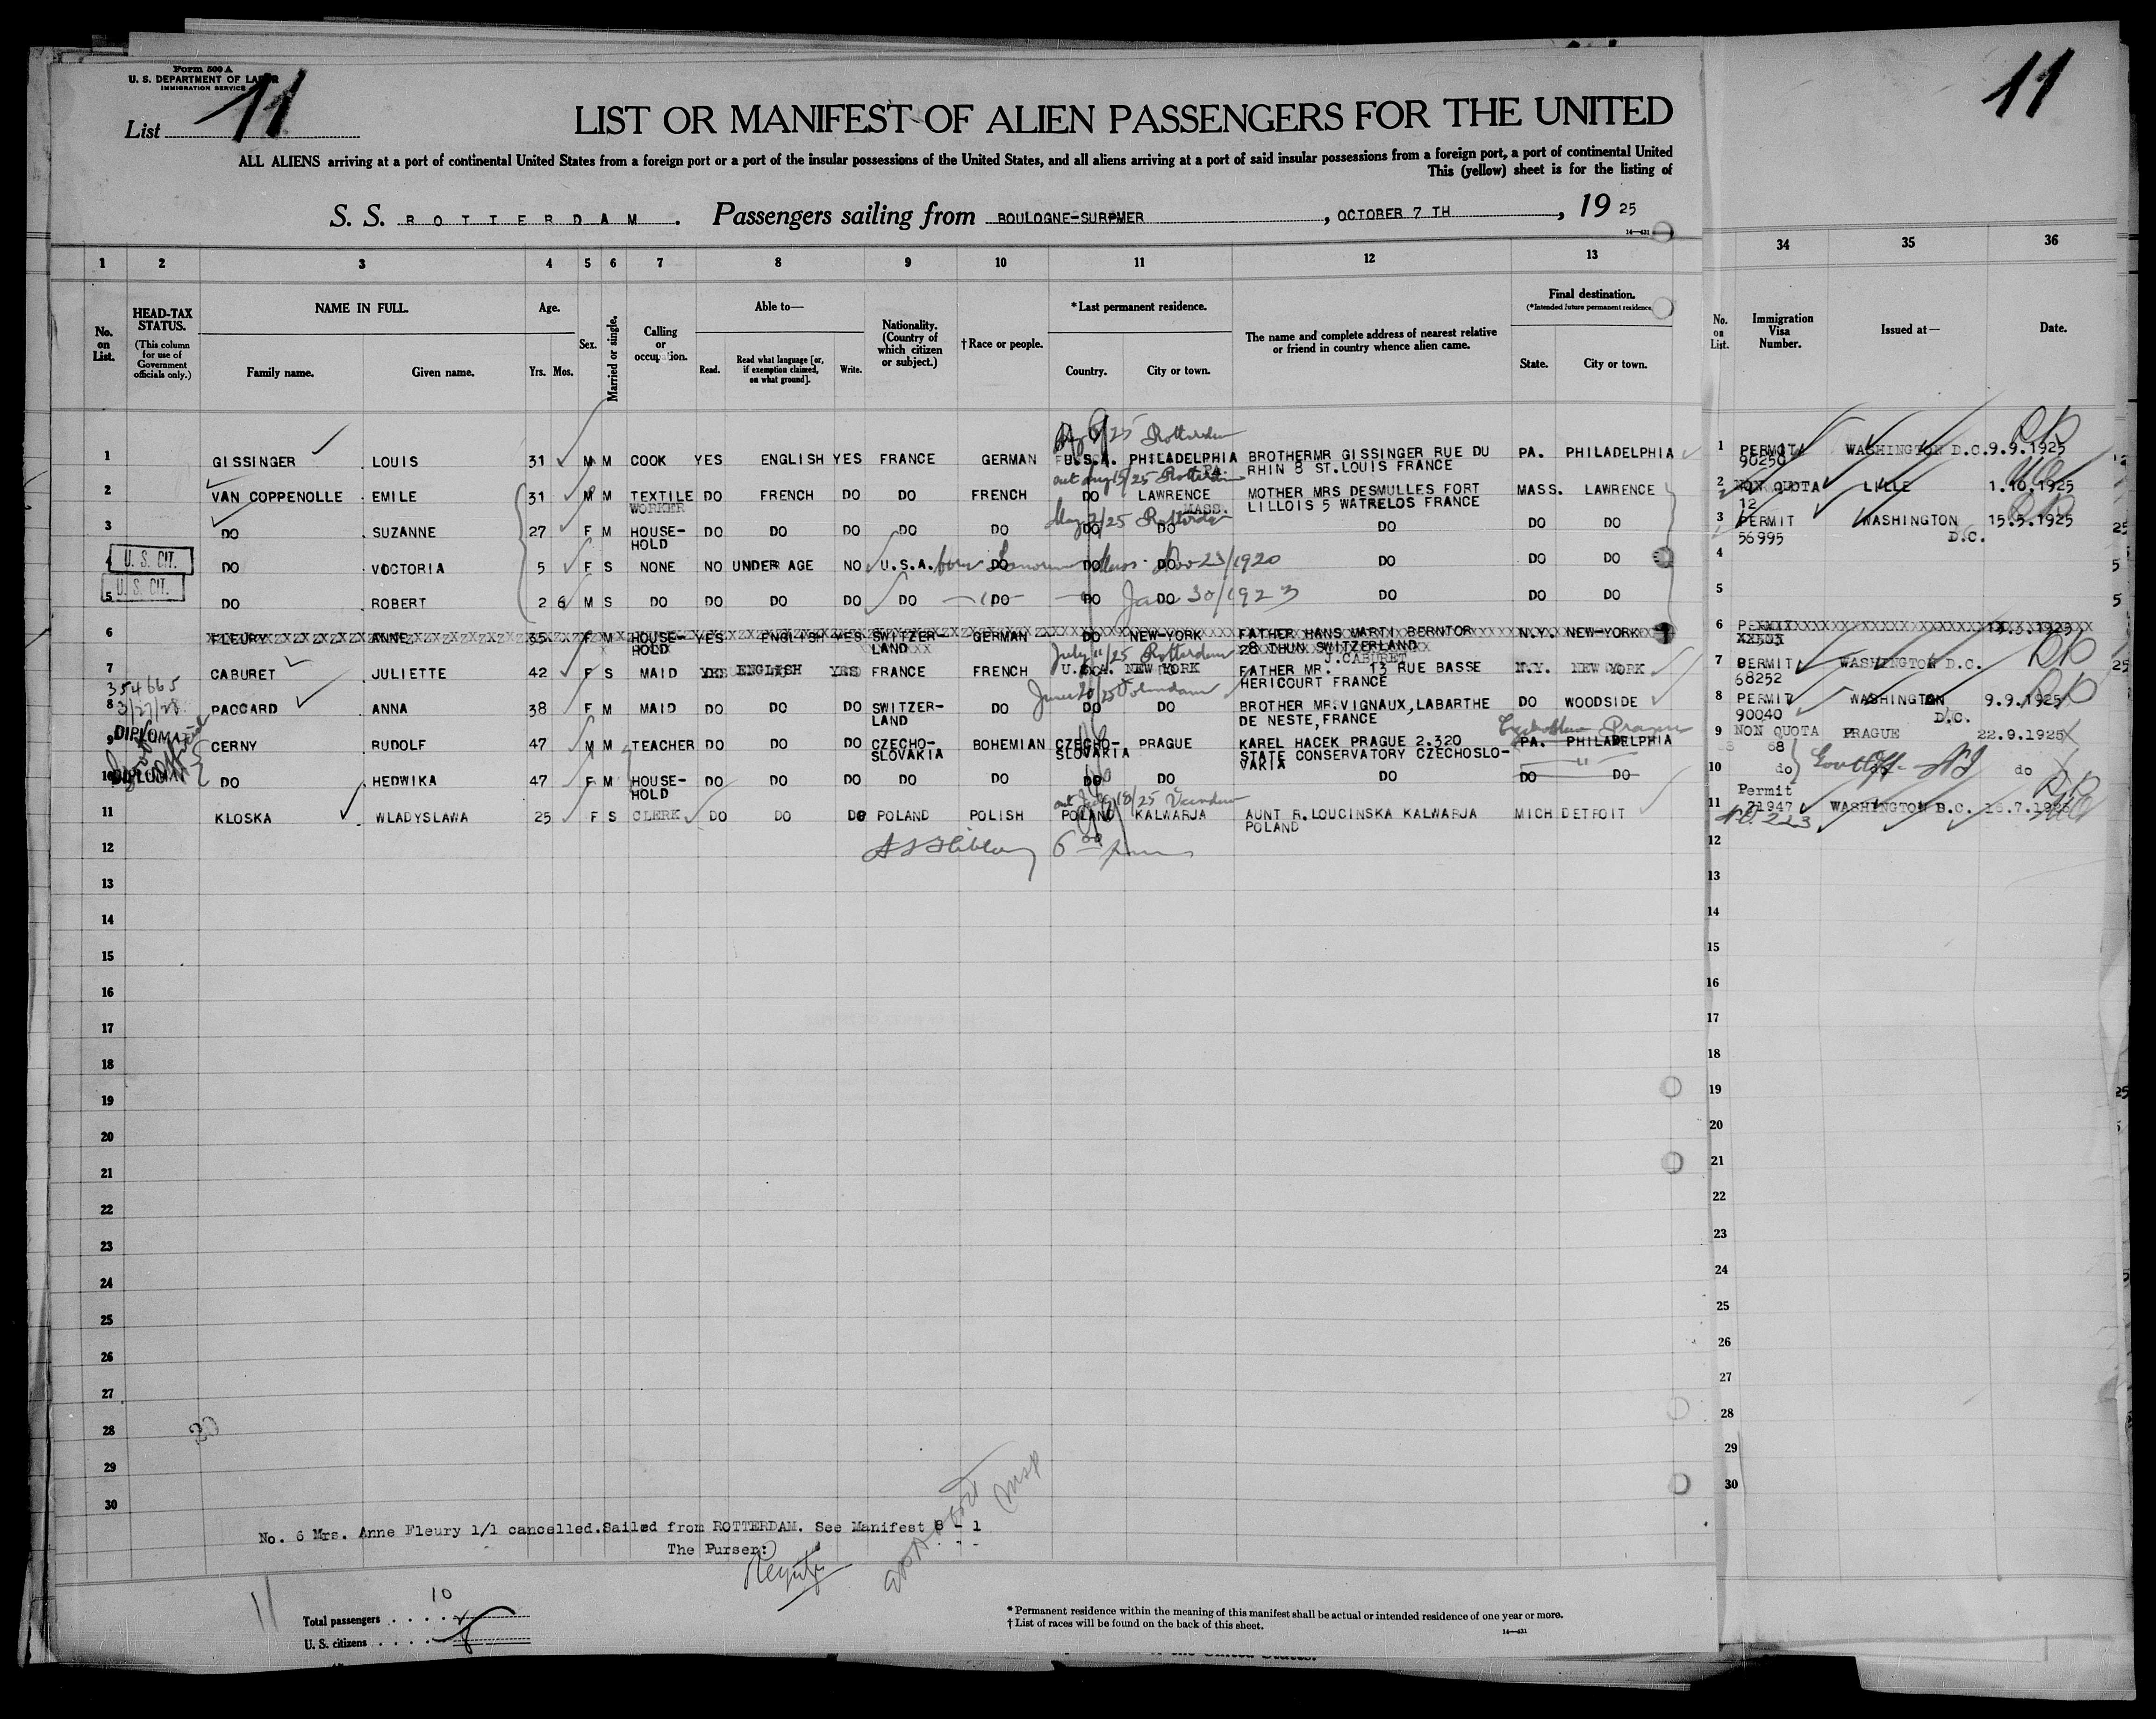 Form 500 A
U. S. DEPARTMENT OF LABOR
IMMIGRATION SERVICE
List 11
11
LIST OR MANIFEST OF ALIEN PASSENGERS FOR THE UNITED
ALL ALIENS arriving at a port of continental United States from a foreign port or a port of the insular possessions of the United States, and all aliens arriving at a port of said insular possessions from a foreign port, a port of continental United
This (yellow) sheet is for the listing of
S. S. ROTTERDAM. Passengers sailing from BOULOGNE-SURPMER, OCTOBER 7 TH, 19 25
14—431
1 2 3 4 5 6 7 8 9 10 11 12 13 34 35 36
No. on List.
HEAD-TAX STATUS.
(This column for use of Government officials only.)
NAME IN FULL.
Family name. Given name.
Age.
Yrs. Mos.
Sex.
Married or single.
Calling or occupation.
Able to—
Read. Read what language [or, if exemption claimed, on what ground]. Write.
Nationality. (Country of which citizen or subject.)
†Race or people.
*Last permanent residence.
Country. City or town.
The name and complete address of nearest relative or friend in country whence alien came.
Final destination.
(*Intended future permanent residence
State. City or town.
No. on List.
Immigration Visa Number.
Issued at—
Date.
/25 Rotterdam
1 GISSINGER LOUIS 31 M M COOK YES ENGLISH YES FRANCE GERMAN U.S.A. PHILADELPHIA BROTHERMR GISSINGER RUE DU PA. PHILADELPHIA 1 PERMIT WASHINGTON D.C. 9.9.1925
PA. RHIN 8 ST.LOUIS FRANCE 90250
out Aug 15/25 Rotterdam
2 VAN COPPENOLLE EMILE 31 M M TEXTILE DO FRENCH DO DO FRENCH DO LAWRENCE MOTHER MRS DESMULLES FORT MASS. LAWRENCE 2 NON QUOTA LILLE 1.10.1925
WORKER MASS. LILLOIS 5 WATRELOS FRANCE 12
May 2/25 Rotterdam
3 DO SUZANNE 27 F M HOUSE- DO DO DO DO DO DO DO DO DO DO 3 PERMIT WASHINGTON 15.5.1925
HOLD 56995 D.C.
U. S. CIT.
4 DO VOCTORIA 5 F S NONE NO UNDER AGE NO U.S.A. DO DO DO DO DO DO 4
born Mass Nov 23/1920
U. S. CIT.
5 DO ROBERT 2 6 M S DO DO DO DO DO DO DO DO DO DO DO 5
Jan 30/1923
6 FLEURY ANNE 35 F M HOUSE- YES ENGLISH YES SWITZER- GERMAN DO NEW-YORK FATHER HANS MARTI BERNTOR N.Y. NEW-YORK 6
HOLD LAND 28 THUN SWITZERLAND
July 11/25 Rotterdam J.CABURET
7 CABURET JULIETTE 42 F S MAID YES ENGLISH YES FRANCE FRENCH U.S.A. NEW YORK FATHER MR. 13 RUE BASSE N.Y. NEW YORK 7 PERMIT WASHINGTON D.C.
HERICOURT FRANCE 68252
354665
3/27/28
June 20/25 Volendam
8 PACCARD ANNA 38 F M MAID DO DO DO SWITZER- DO DO DO BROTHER MR.VIGNAUX, LABARTHE DO WOODSIDE 8 PERMIT WASHINGTON 9.9.1925
LAND DE NESTE, FRANCE 90040 D.C.
DIPLOMAT
9 CERNY RUDOLF 47 M M TEACHER DO DO DO CZECHO- BOHEMIAN CZECHO- PRAGUE KAREL HACEK PRAGUE 2.320 PA. PHILADELPHIA 9 NON QUOTA PRAGUE 22.9.1925
SLOVAKIA SLOVAKIA STATE CONSERVATORY CZECHOSLO- 68
VAKIA
DIPLOMAT
10 DO HEDWIKA 47 F M HOUSE- DO DO DO DO DO DO DO DO DO DO 10 do do
HOLD
Permit
out July 18/25
11 KLOSKA WLADYSLAWA 25 F S CLERK DO DO DO POLAND POLISH POLAND KALWARJA AUNT R.LOUCINSKA KALWARJA MICH DETROIT 11 71947 WASHINGTON D.C. 15.7.1925
POLAND N.Q. 223
12 12
13 13
14 14
15 15
16 16
17 17
18 18
19 19
20 20
21 21
22 22
23 23
24 24
25 25
26 26
27 27
28 28
29 29
30 30
No. 6 Mrs. Anne Fleury 1/1 cancelled.Sailed from ROTTERDAM. See Manifest 8 - 1
The Purser:
11
10
Total passengers
U. S. citizens
* Permanent residence within the meaning of this manifest shall be actual or intended residence of one year or more.
† List of races will be found on the back of this sheet.
14—431